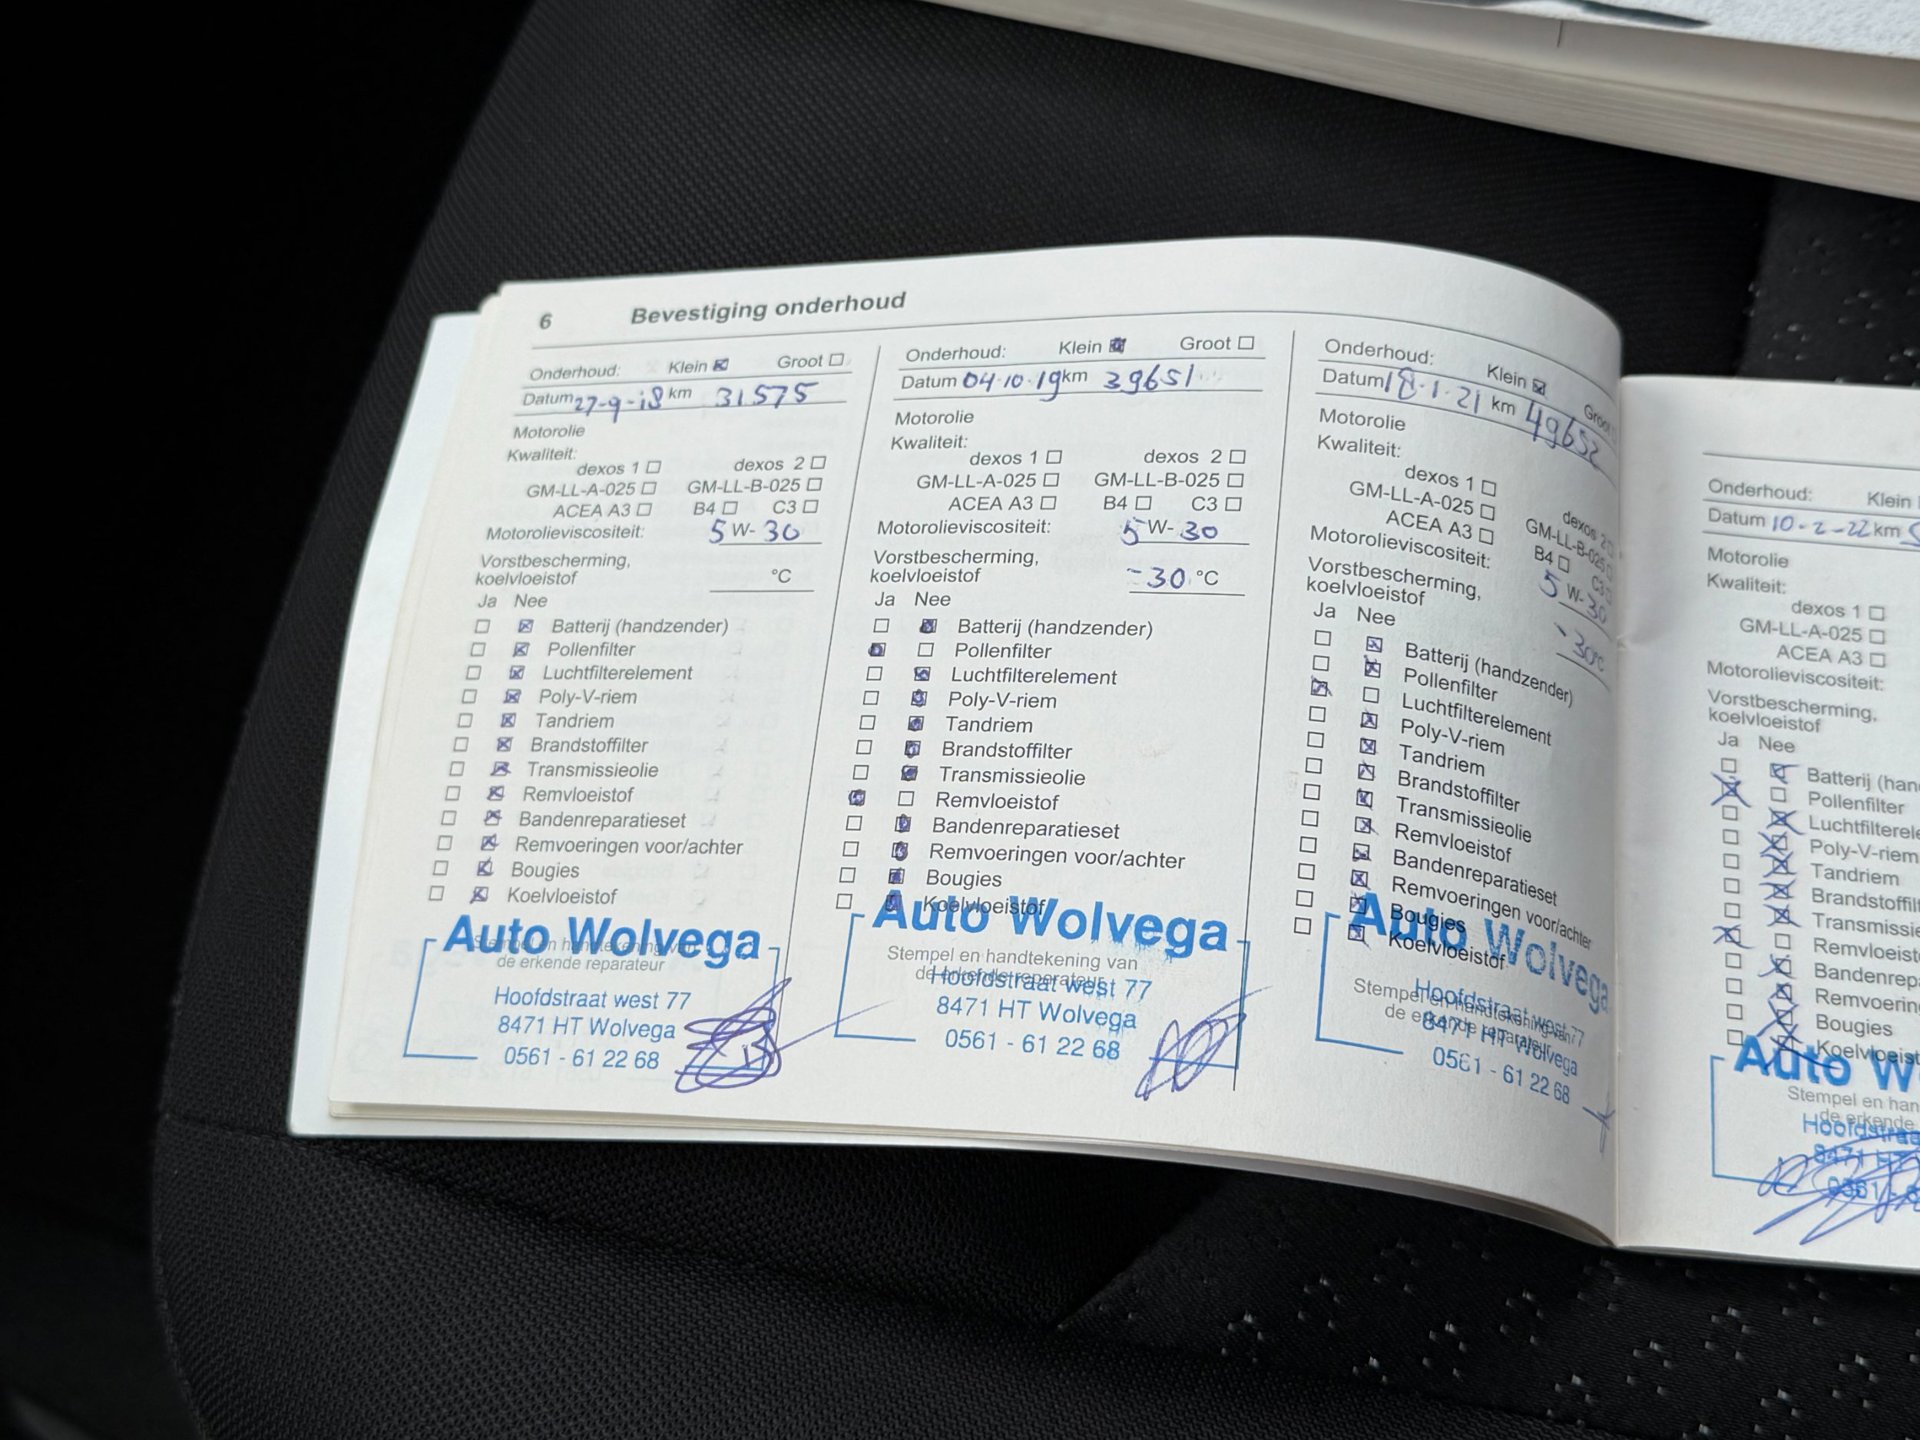 6 Bevestiging onderhoud
Onderhoud: Klein Groot
Datum 27-9-18 km 31575
Motorolie
Kwaliteit:
dexos 1 dexos 2
GM-LL-A-025 GM-LL-B-025
ACEA A3 B4 C3
Motorolieviscositeit: 5 W- 30
Vorstbescherming,
koelvloeistof °C
Ja Nee
Batterij (handzender)
Pollenfilter
Luchtfilterelement
Poly-V-riem
Tandriem
Brandstoffilter
Transmissieolie
Remvloeistof
Bandenreparatieset
Remvoeringen voor/achter
Bougies
Koelvloeistof
Auto Wolvega
Stempel en handtekening van
de erkende reparateur
Hoofdstraat west 77
8471 HT Wolvega
0561 - 61 22 68
Onderhoud: Klein Groot
Datum 04-10-19 km 39651
Motorolie
Kwaliteit:
dexos 1 dexos 2
GM-LL-A-025 GM-LL-B-025
ACEA A3 B4 C3
Motorolieviscositeit: 5 W- 30
Vorstbescherming,
koelvloeistof -30 °C
Ja Nee
Batterij (handzender)
Pollenfilter
Luchtfilterelement
Poly-V-riem
Tandriem
Brandstoffilter
Transmissieolie
Remvloeistof
Bandenreparatieset
Remvoeringen voor/achter
Bougies
Koelvloeistof
Auto Wolvega
Stempel en handtekening van
de erkende reparateur
Hoofdstraat west 77
8471 HT Wolvega
0561 - 61 22 68
Onderhoud: Klein Groot
Datum 18-1-21 km 49652
Motorolie
Kwaliteit:
dexos 1 dexos 2
GM-LL-A-025 GM-LL-B-025
ACEA A3 B4 C3
Motorolieviscositeit: 5 W- 30
Vorstbescherming,
koelvloeistof -30°C
Ja Nee
Batterij (handzender)
Pollenfilter
Luchtfilterelement
Poly-V-riem
Tandriem
Brandstoffilter
Transmissieolie
Remvloeistof
Bandenreparatieset
Remvoeringen voor/achter
Bougies
Koelvloeistof
Auto Wolvega
Stempel en handtekening van
de erkende reparateur
Hoofdstraat west 77
8471 HT Wolvega
0561 - 61 22 68
Onderhoud: Klein
Datum 10-2-22 km
Motorolie
Kwaliteit:
dexos 1
GM-LL-A-025
ACEA A3
Motorolieviscositeit:
Vorstbescherming,
koelvloeistof
Ja Nee
Batterij (han
Pollenfilter
Luchtfilterele
Poly-V-riem
Tandriem
Brandstoffil
Transmissie
Remvloeisto
Bandenrepa
Remvoering
Bougies
Koelvloeist
Auto W
Stempel en han
de erkende
Hoofdstraa
8471 HT
0561 - 6